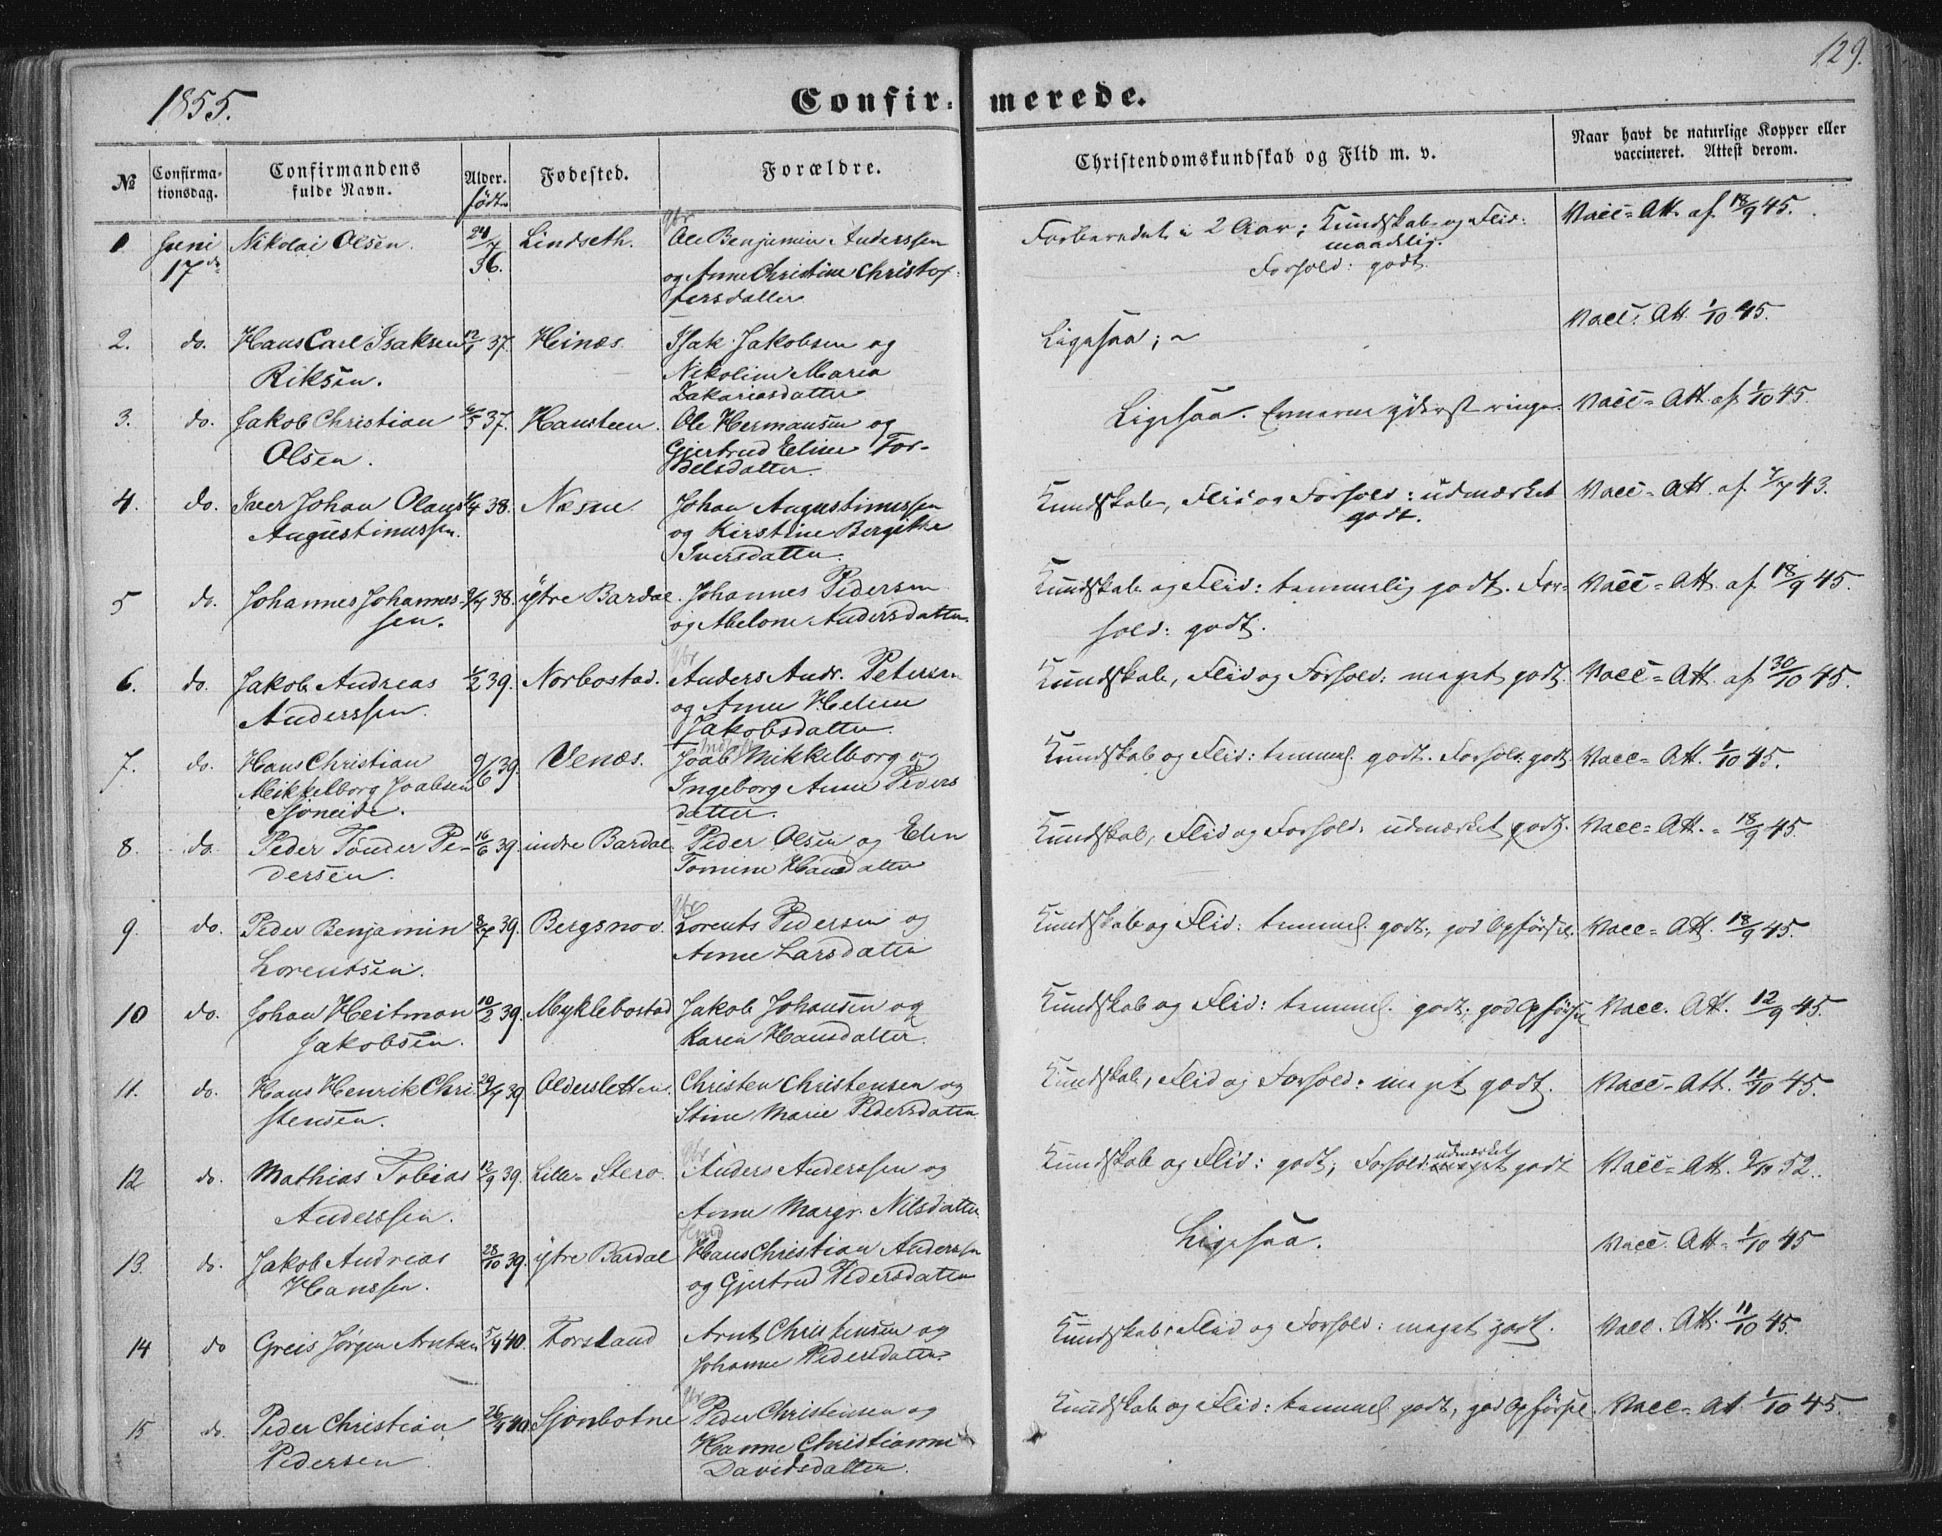 129.
1855.
Confirmerede.
№
Confirmationsdag.
Confirmandens fulde Navn.
Alder. født
Fødested.
Forældre.
Christendomskundskab og Flid m. v.
Naar havt de naturlige Kopper eller vaccineret. Attest derom.
1 Juni 17de Nikolai Olsen. 24/7 36. Lindseth. Ole Benjamin Anderssen Forberedet i 2 Aar; Kundskab og Flid: Vacc=Att. af 18/9 45.
og Anne Christine Christof- maadelig.
fersdatter Forhold: godt
2. do. Hans Carl Isaksen 12/1 37. Heinæs. Isak Jakobsen og Ligesaa; ~ Vacc. Att. 1/10 45.
Riksen. Nikoline Maria
Zakariasdatter
3. do. Jakob Christian 6/5 37. Hansteen. Ole Hermansen og Ligesaa. Evnerne yderst ringe. Vacc=Att. af 1/10 45.
Olsen. Gjertrud Eline Tor-
belsdatter.
4. do. Iver Johan Olaus 1/4 38. Næsne. Johan Augustinussen Kundskab, Flid og Forhold: udmærket Vacc=Att. af 7/7 43.
Augustinussen. og Kirstine Bergitha godt.
Iversdatter.
5 do. Johannes Johannes- 9/4 38. ytre Bardal. Johannes Pedersen Kundskab og Flid: temmelig godt. For- Vacc=Att. af 18/9 45.
sen. og Abelone Andersdatter. hold: godt.
6. do. Jakob Andreas 1/2 39. Norbostad. Anders Andr. Petersen Kundskab, Flid og Forhold: meget godt. Vacc=Att. af 30/10 45.
Anderssen. og Anne Helene
Jakobsdatter.
7. do. Hans Christian 9/6 39. Venæs. Joab Mikkelborg og Kundskab og Flid: temmel. godt. Forhold: godt Vacc=Att. 1/10 45.
Mikkelborg Joabsen Ingeborg Anne Peders
Sjøneide. datter.
8. do. Peder Tønder Pe- 16/6 39. indre Bardal. Peder Olsen og Elen Kundskab, Flid og Forhold: udmærket godt. Vacc=Att. 18/9 45.
dersen. Tomine Hansdatter
9. do. Peder Benjamin 8/7 39. Bergsnov. Lorents Pedersen og Kundskab og Flid: temmel. godt; god Opførsel. Vacc=Att. 18/9 45.
Lorentsen. Anne Larsdatter
10 do. Johan Heitman 10/2 39. Myklebostad Jakob Johansen og Kundskab og Flid: temmel. godt; god Opførsel Vacc. Att. 12/9 45.
Jakobsen. Karen Hansdatter.
11. do. Hans Henrik Chri- 29/9 39. Aldersletten. Christen Christensen og Kundskab, Flid og Forhold: meget godt. Vacc=Att. 11/10 45.
stensen. Stine Marie Pedersdatter
12 do. Mathias Tobias 12/9 39. Lille=Stero. Anders Anderssen og Kundskab og Flid: godt; Forhold: udmærket godt Vacc=Att. 9/10 52.
Anderssen. Anne Margr. Nilsdatter.
13. do. Jakob Andreas 28/10 39. ytre Bardal Hans Christian Anderssen Ligesaa. Vacc. Att= 1/10 45
Hanssen. og Gjertrud Pedersdatter
14 do Greis Jørgen Arntsen 5/4 40. Forsland Arnt Christensen og Kundskab, Flid og Forhold: meget godt. Vacc. Att. 11/10 45.
Johanne Pedersdatter.
15 do. Peder Christian 26/4 40. Sjonbotne Peder Christensen og Kundskab og Flid: temmel. godt, god Opførsel. Vacc=At. 1/10 45.
Pedersen Hanne Christianne
Davidsdatter.